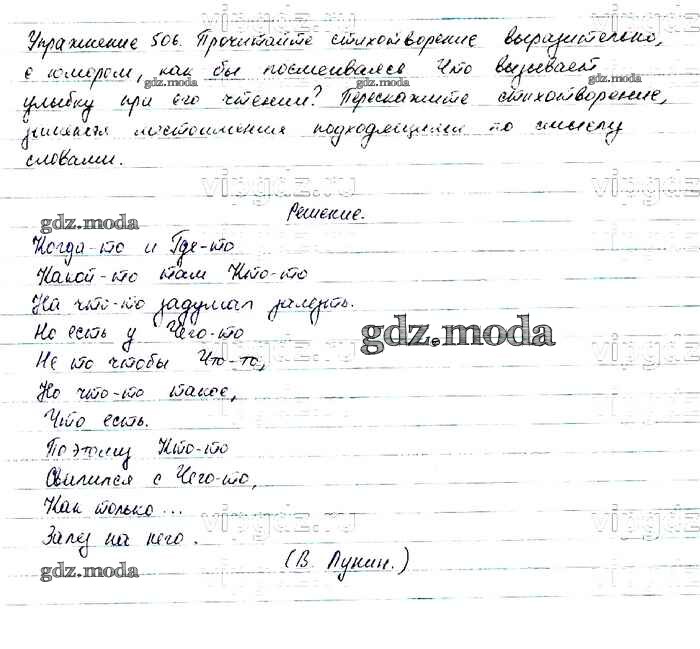 Упражнение 506. Прочитайте стихотворение выразительно,
с юмором, как бы посмеиваясь Что вызывает
улыбку при его чтении? Перескажите стихотворение,
заменяя местоимения подходящими по смыслу
словами.
Решение.
Когда-то и Где-то
Какой-то там Кто-то
На что-то задумал залезть.
Но есть у Чего-то
Не то чтобы Что-то,
Но что-то такое,
Что есть.
Поэтому Кто-то
Свалился с Чего-то,
Как только...
Залез на него.
(В. Лунин.)
vipgdz.ru
gdz.moda